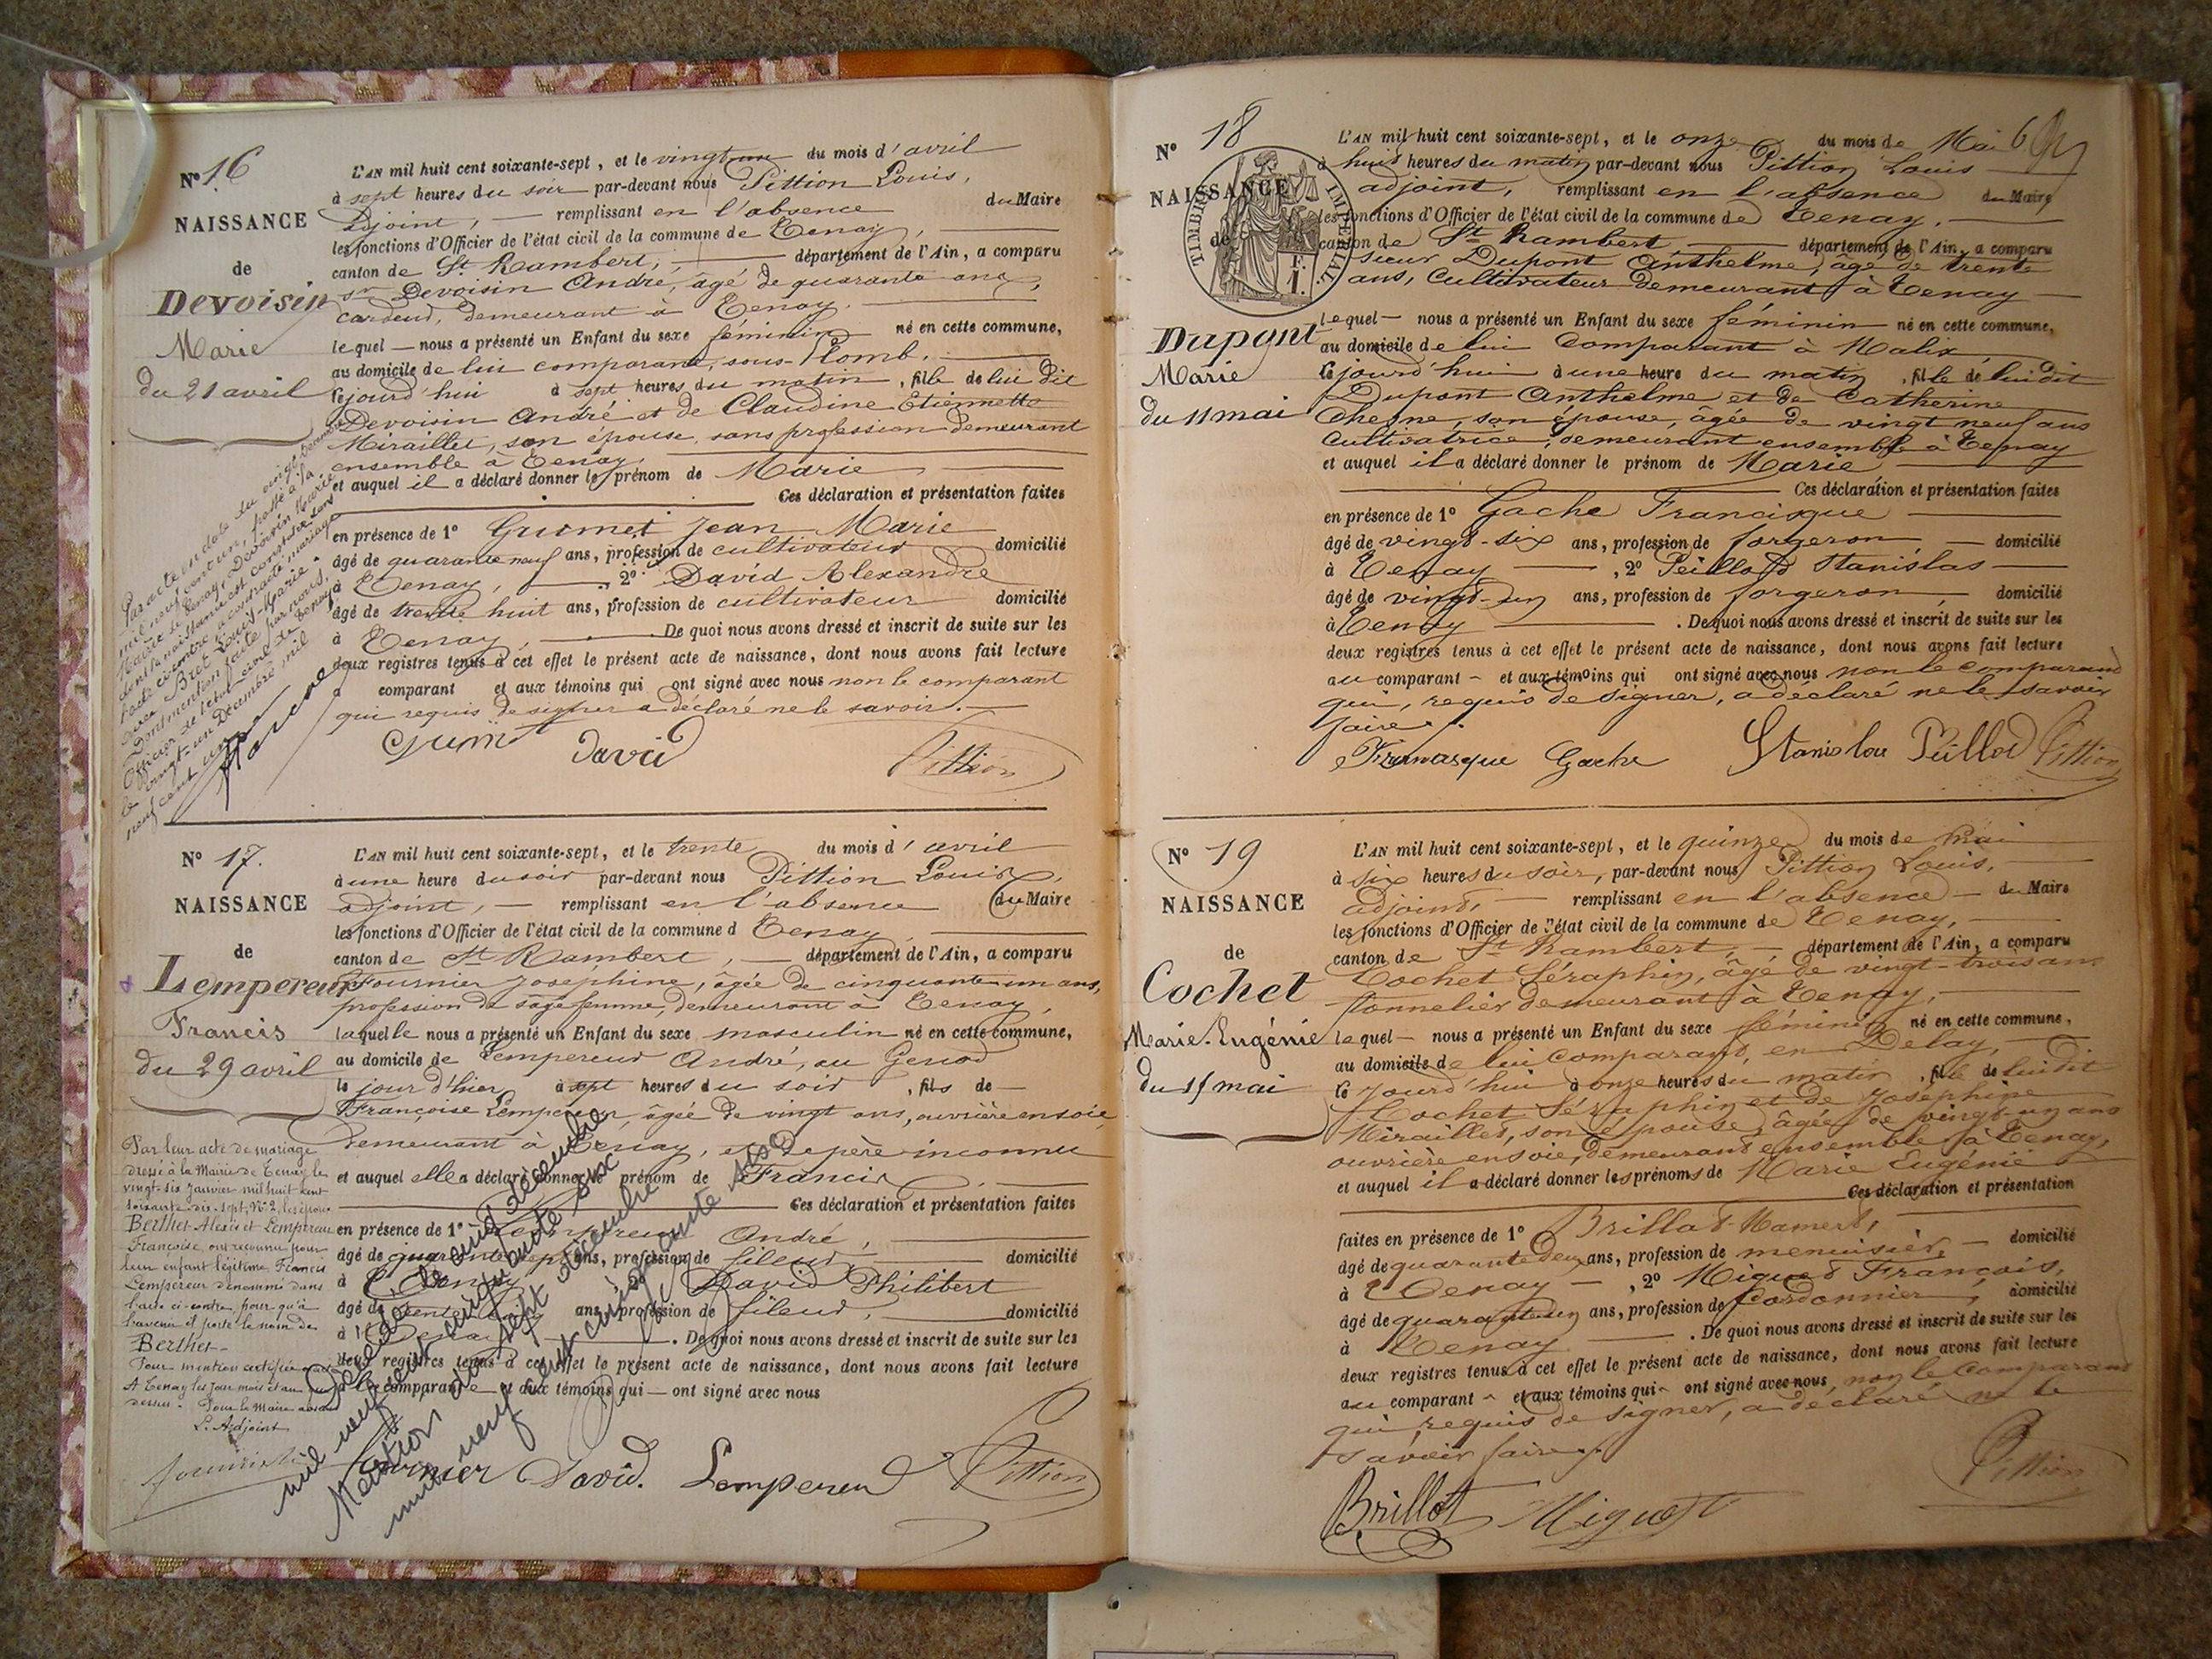 N° 16
NAISSANCE
de
Devoisin
Marie
du 21 avril
L'AN mil huit cent soixante-sept, et le vingt un du mois d'avril
à sept heures du soir par-devant nous Pittion Louis,
Adjoint, remplissant en l'absence du Maire
les fonctions d'Officier de l'état civil de la commune de Tenay,
canton de St Rambert, département de l'Ain, a comparu
sr Devoisin André, âgé de quarante ans,
cardeur, demeurant à Tenay.
lequel nous a présenté un Enfant du sexe féminin né en cette commune,
au domicile de lui comparant, sous-Plomb.
lejourd'hui à sept heures du matin, fille de lui dit
Devoisin André et de Claudine Etiennette
Miraillet, son épouse, sans profession demeurant
ensemble à Tenay
et auquel il a déclaré donner le prénom de Marie
Ces déclaration et présentation faites
en présence de 1° Gumet Jean Marie
âgé de quarante neuf ans, profession de cultivateur domicilié
à Tenay, 2° David Alexandre
âgé de trente huit ans, profession de cultivateur domicilié
à Tenay, De quoi nous avons dressé et inscrit de suite sur les
deux registres tenus à cet effet le présent acte de naissance, dont nous avons fait lecture
comparant et aux témoins qui ont signé avec nous non le comparant
qui requis de signer a déclaré ne le savoir.
Gumet David Pittion
Par acte en date du vingt Décembre
mil neuf cent un, passé à la
Mairie de Tenay, Devoisin Marie
dont la naissance est constatée dans
l'acte ci-contre a contracté mariage
avec Bret Louis-Marie.
Dont mention faite par nous,
Officier de l'état civil de Tenay
le vingt-un Décembre mil
neuf cent un
N° 17.
NAISSANCE
de
Lempereur
Francis
du 29 avril
L'AN mil huit cent soixante-sept, et le trente du mois d'avril
à une heure du soir par-devant nous Pittion Louis,
adjoint, remplissant en l'absence du Maire
les fonctions d'Officier de l'état civil de la commune d Tenay
canton de St Rambert, département de l'Ain, a comparu
Fournier Joséphine, âgée de cinquante-un ans,
profession de sage femme, demeurant à Tenay,
laquelle nous a présenté un Enfant du sexe masculin né en cette commune,
au domicile de Lempereur André, au Genod
le jour d'hier à sept heures du soir, fils de
Françoise Lempereur, âgée de vingt ans, ouvrière en soie
demeurant à Tenay, et de père inconnu
et auquel elle a déclaré donner le prénom de Francis
Ces déclaration et présentation faites
en présence de 1° Lempereur André,
âgé de quarante sept ans, profession de fileur, domicilié
à Tenay 2° David Philibert
âgé de trente ans, profession de fileur, domicilié
à Tenay. De quoi nous avons dressé et inscrit de suite sur les
deux registres tenus à cet effet le présent acte de naissance, dont nous avons fait lecture
à la comparante et aux témoins qui ont signé avec nous
Fournier David. Lempereur Pittion
Par leur acte de mariage
dressé à la Mairie de Tenay le
vingt-six Janvier mil huit cent
soixante-dix-sept, N° 2, les époux
Berthet Alexis et Lempereur
Françoise, ont reconnu pour
leur enfant légitime Francis
Lempereur dénommé dans
l'acte ci-contre, pour qu'à
l'avenir il porte le nom de
Berthet
Pour mention certifiée
A Tenay les jour mois et an
dessus. Pour le Maire absent
L'Adjoint
Décédé le cinq décembre
mil neuf cent cinquante six
Mention du sept décembre
mil neuf cent cinquante six
N° 18
NAISSANCE
de
TIMBRE IMPERIAL
F.
1.
Dupont
Marie
du 11 mai
L'AN mil huit cent soixante-sept, et le onze du mois de Mai
à huit heures du matin par-devant nous Pittion Louis
adjoint, remplissant en l'absence du Maire
les fonctions d'Officier de l'état civil de la commune de Tenay,
canton de St Rambert département de l'Ain, a comparu
sieur Dupont Anthelme, âgé de trente
ans, Cultivateur demeurant à Tenay
lequel nous a présenté un Enfant du sexe féminin né en cette commune,
au domicile de lui comparant à Malix
lejourd'hui à une heure du matin, fille de lui dit
Dupont Anthelme et de Catherine
Chesne, son épouse, âgée de vingt neuf ans
Cultivatrice, demeurant ensemble à Tenay
et auquel il a déclaré donner le prénom de Marie
Ces déclaration et présentation faites
en présence de 1° Gache Francisque
âgé de vingt-six ans, profession de forgeron domicilié
à Tenay, 2° Peillod Stanislas
âgé de vingt-un ans, profession de forgeron, domicilié
à Tenay. De quoi nous avons dressé et inscrit de suite sur les
deux registres tenus à cet effet le présent acte de naissance, dont nous avons fait lecture
au comparant et aux témoins qui ont signé avec nous non le comparant
qui, requis de signer, a déclaré ne le savoir
faire.
Francisque Gache Stanislas Peillod Pittion
N° 19
NAISSANCE
de
Cochet
Marie-Eugénie
du 15 mai
L'AN mil huit cent soixante-sept, et le quinze du mois de Mai
à six heures du soir, par-devant nous Pittion Louis,
adjoint, remplissant en l'absence du Maire
les fonctions d'Officier de l'état civil de la commune de Tenay,
canton de St Rambert, département de l'Ain, a comparu
Cochet Séraphin, âgé de vingt-trois ans
tonnelier demeurant à Tenay,
lequel nous a présenté un Enfant du sexe féminin né en cette commune,
au domicile de lui comparant, en Delay,
lejourd'hui à onze heures du matin, fille de lui dit
Cochet Séraphin et de Joséphine
Miraillet, son épouse, âgée de vingt-un ans
ouvrière en soie, demeurant ensemble à Tenay,
et auquel il a déclaré donner les prénoms de Marie Eugénie
Ces déclaration et présentation
faites en présence de 1° Brillat Mamert, domicilié
âgé de quarante deux ans, profession de menuisier,
à Tenay, 2° Miguet François,
âgé de quarante un ans, profession de Cordonnier, domicilié
à Tenay. De quoi nous avons dressé et inscrit de suite sur les
deux registres tenus à cet effet le présent acte de naissance, dont nous avons fait lecture
au comparant et aux témoins qui ont signé avec nous, non le comparant
qui, requis de signer, a déclaré ne le
savoir faire.
Brillat Miguet Pittion